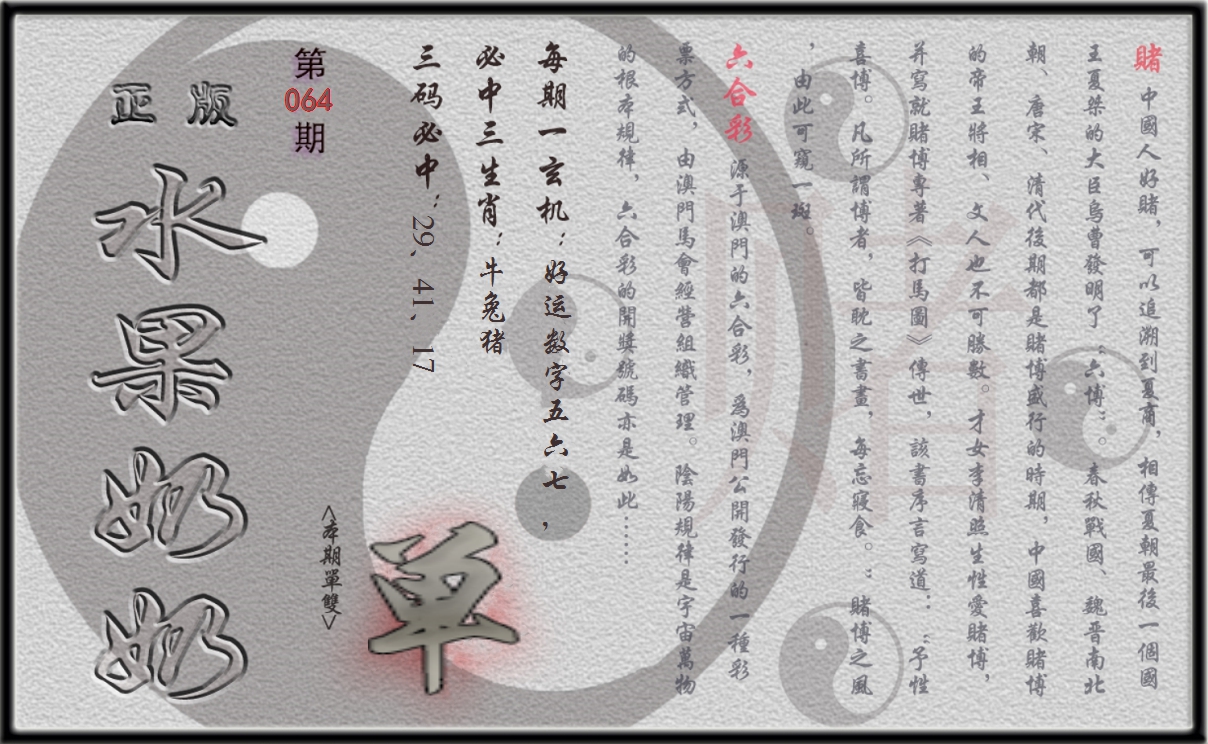 賭 中國人好賭，可以追溯到夏商，相傳夏朝最後一個國
王夏桀的大臣烏曹發明了“六博”。春秋戰國、魏晉南北
朝、唐宋、清代後期都是賭博盛行的時期，中國喜歡賭博
的帝王將相、文人也不可勝數。才女李清照生性愛賭博，
并寫就賭博專著《打馬圖》傳世，該書序言寫道：“予性
喜博。凡所謂博者，皆耽之書晝，每忘寢食。：賭博之風
，由此可窺一斑。
六合彩 源于澳門的六合彩，爲澳門公開發行的一種彩
票方式，由澳門馬會經營組織管理。陰陽規律是宇宙萬物
的根本規律，六合彩的開獎號碼亦是如此……
每期一玄机：好运数字五六七，
必中三生肖：牛兔猪
三码必中：29、41、17
單
<本期單雙>
第
064
期
正版
水果奶奶